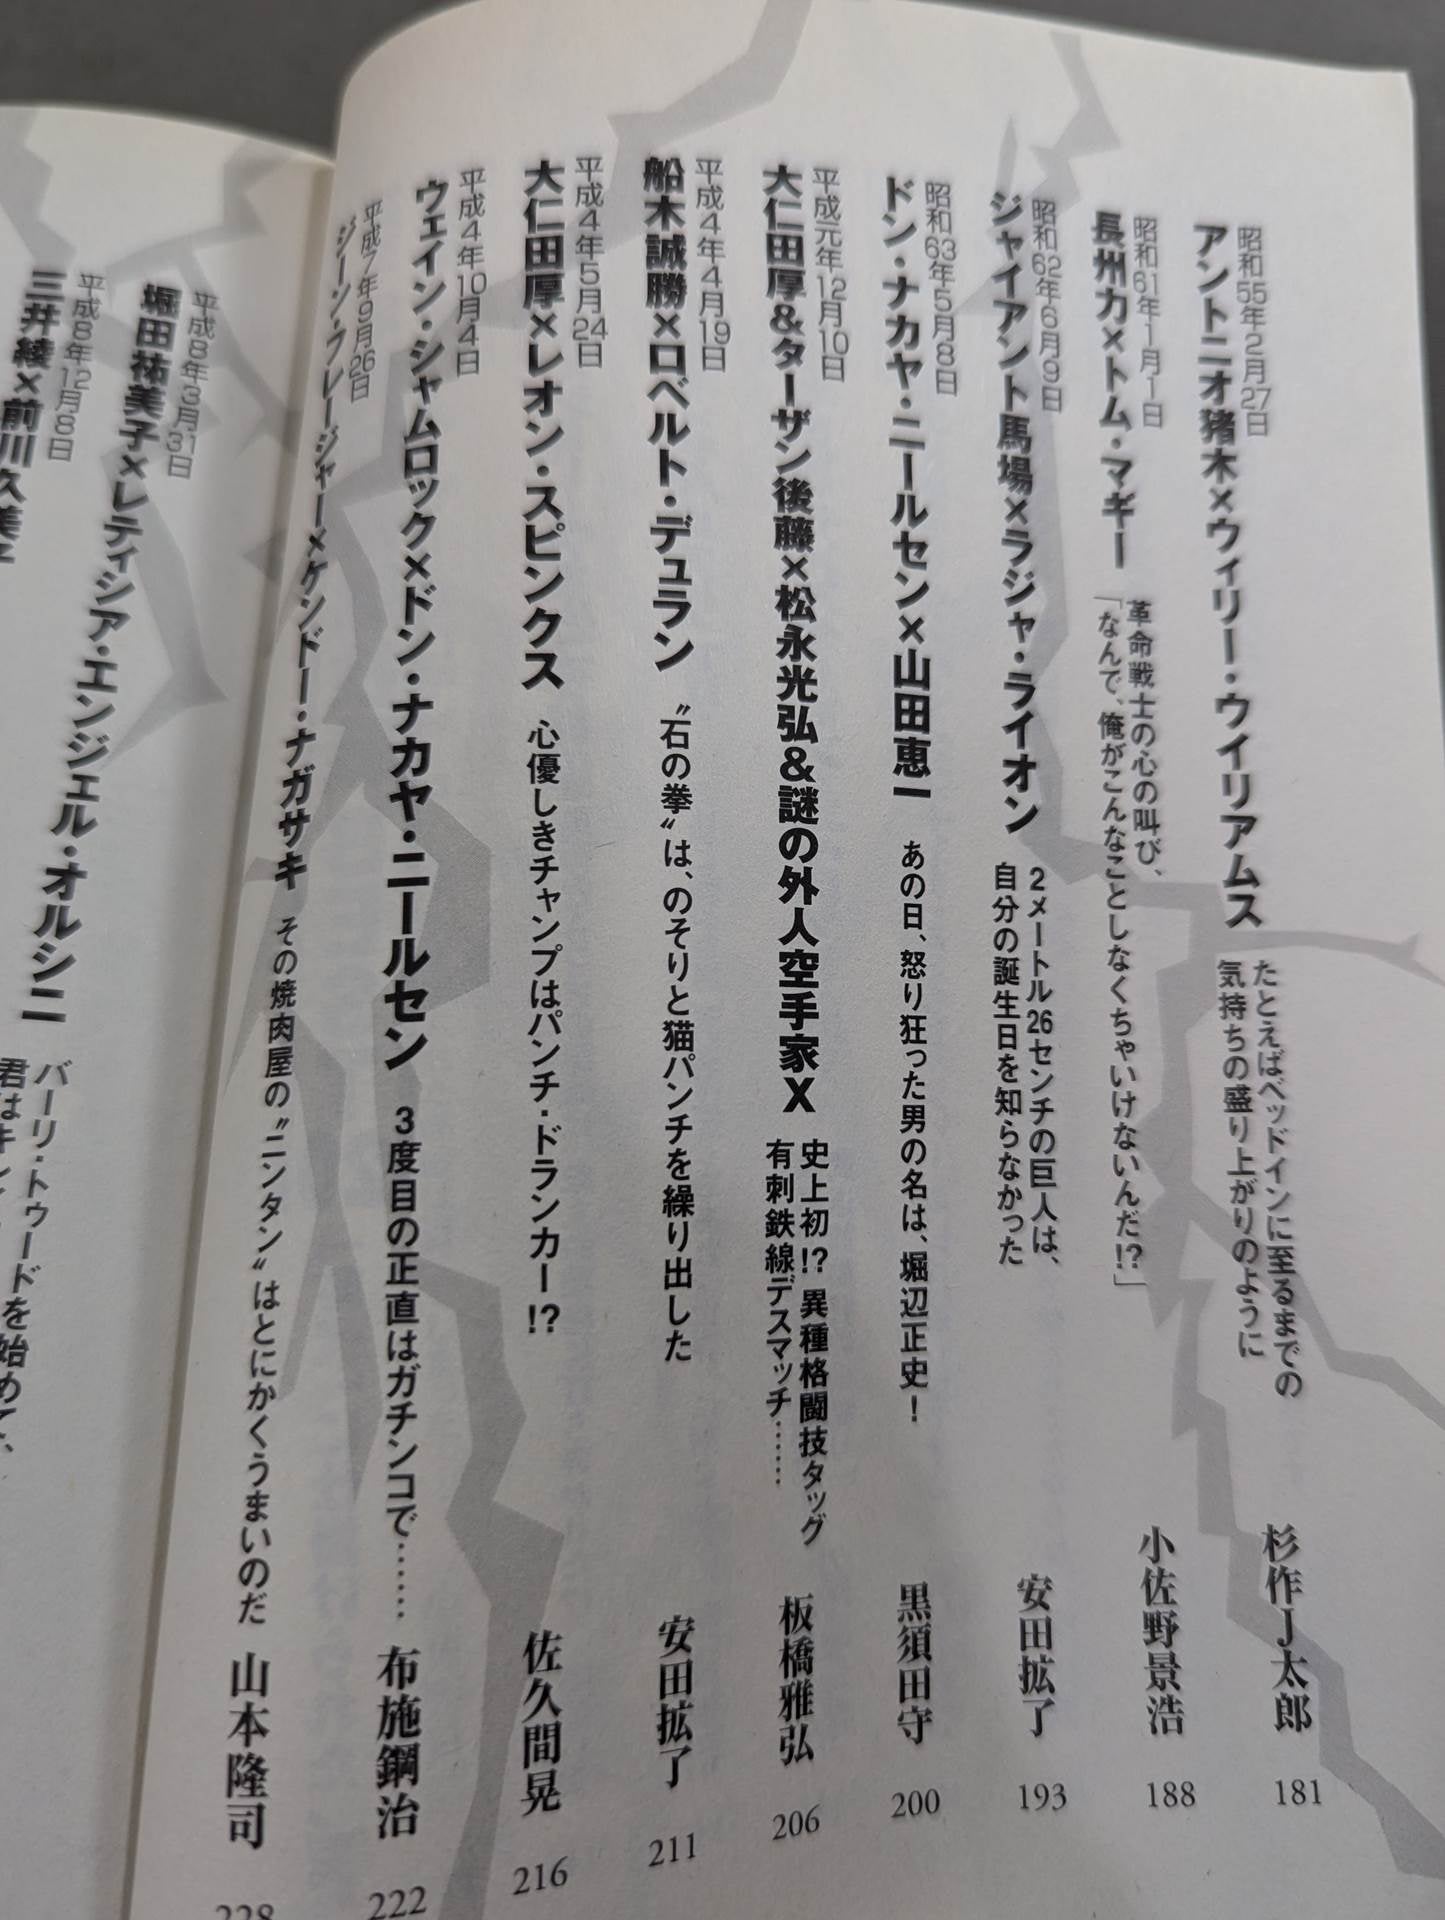 昭和55年2月27日
アントニオ猪木×ウィリー・ウイリアムス
たとえばベッドインに至るまでの
気持ちの盛り上がりのように
杉作J太郎
181
昭和61年1月1日
長州力×トム・マギー
革命戦士の心の叫び、
「なんで、俺がこんなことしなくちゃいけないんだ!?」
小佐野景浩
188
昭和62年6月9日
ジャイアント馬場×ラジャ・ライオン
2メートル26センチの巨人は、
自分の誕生日を知らなかった
安田拡了
193
昭和63年5月8日
ドン・ナカヤ・ニールセン×山田恵一
あの日、怒り狂った男の名は、堀辺正史!
黒須田守
200
平成元年12月10日
大仁田厚&ターザン後藤×松永光弘&謎の外人空手家X
史上初!?異種格闘技タッグ
有刺鉄線デスマッチ……
板橋雅弘
206
平成4年4月19日
船木誠勝×ロベルト・デュラン
〝石の拳〟は、のそりと猫パンチを繰り出した
安田拡了
211
平成4年5月24日
大仁田厚×レオン・スピンクス
心優しきチャンプはパンチ・ドランカー!?
佐久間晃
216
平成4年10月4日
ウェイン・シャムロック×ドン・ナカヤ・ニールセン
3度目の正直はガチンコで……
布施鋼治
222
平成7年9月26日
ジーン・フレージャー×ケンドー・ナガサキ
その焼肉屋の〝ニンタン〟はとにかくうまいのだ
山本隆司
228
平成8年3月31日
堀田祐美子×レティシア・エンジェル・オルシニ
バーリ・トゥードを始めて、
君はキ
平成8年12月8日
三井綾×前川久美子